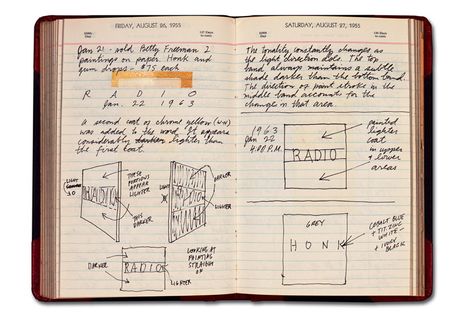 FRIDAY, AUGUST 26, 1955
Jan 21 - sold Betty Freeman 2
paintings on paper. Honk and
gum drops - $75 each
R A D I O
Jan. 22 1963
A second coat of chrome yellow (W+N)
was added to the word. It appears
considerably lighter than
the first coat.
LIGHT
RADIO
THESE
PORTIONS
APPEAR
LIGHTER
THIS
DARKER
LIGHT
DARKER
LIGHTER
DARKER
RADIO
LIGHTER
LOOKING AT
PAINTING
STRAIGHT
ON
SATURDAY, AUGUST 27, 1955
The tonality constantly changes as
the light direction does. The top
band always maintains a subtle
shade darker than the bottom band.
The direction of paint stroke in the
middle band accounts for the
change in that area.
1963
Jan 22
4:00 P.M.
RADIO
painted
lighter
coat
in upper
& lower
areas
GREY
HONK
COBALT BLUE
+ TIT. ZINC
WHITE -
+ IVORY
BLACK